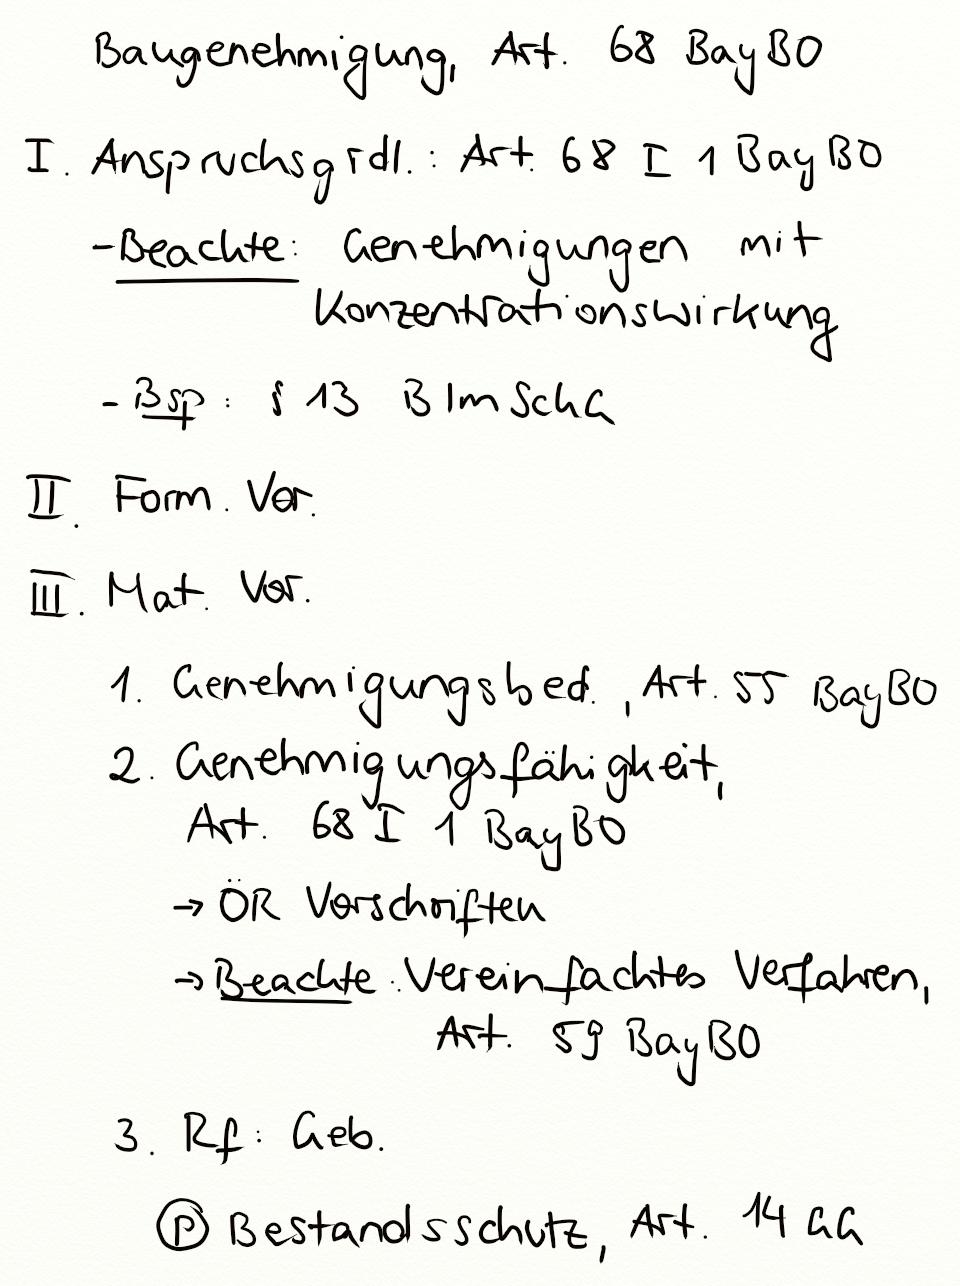 Baugenehmigung, Art. 68 BayBO
I. Anspruchsgrdl.: Art. 68 I 1 BayBO
- Beachte: Genehmigungen mit
Konzentrationswirkung
- Bsp: § 13 BImSchG
II. Form. Vor.
III. Mat. Vor.
1. Genehmigungsbed., Art. 55 BayBO
2. Genehmigungsfähigkeit,
Art. 68 I 1 BayBO
→ ÖR Vorschriften
→ Beachte: Vereinfachtes Verfahren,
Art. 59 BayBO
3. Rf: Geb.
Ⓟ Bestandsschutz, Art. 14 GG